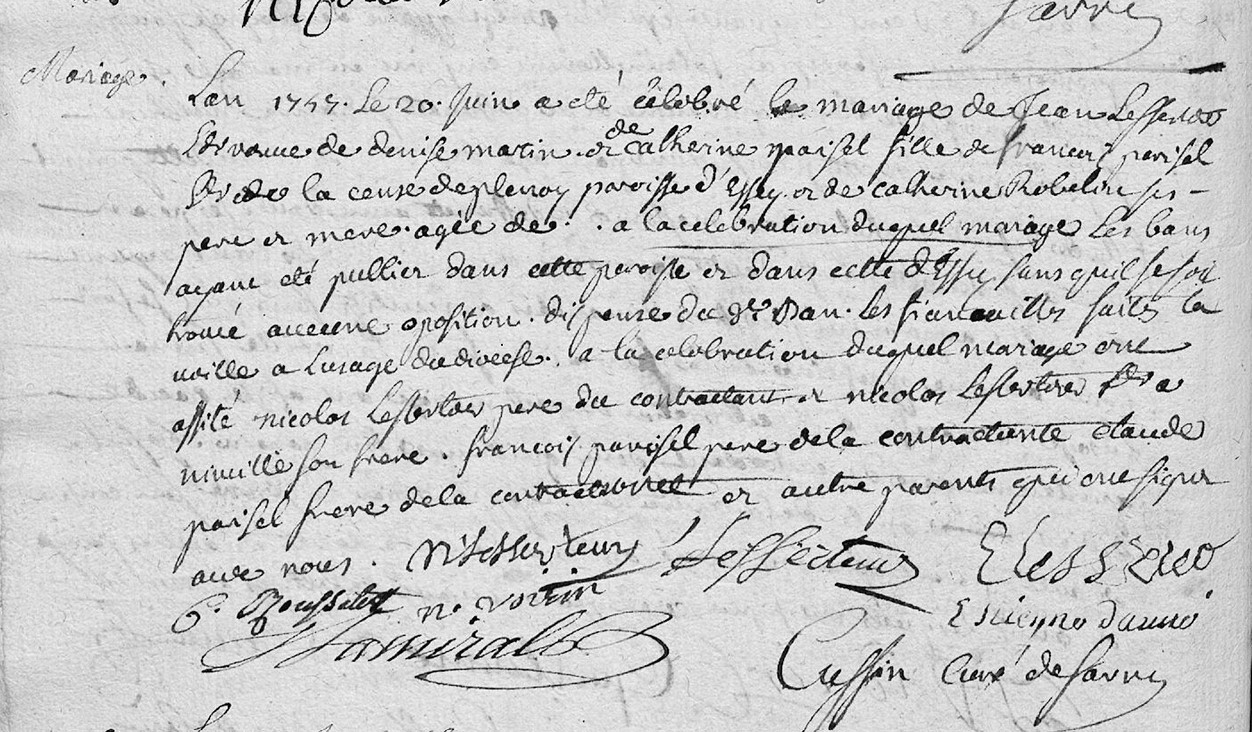 Savri
Mariage.
L'an 1757. Le 20. Juin a eté célébré le mariage de Jean
veuve de denise matin et de catherine parisel fille de francois parisel
de la cense de plenoy paroisse d'Essey. et de catherine Robelin ses
pere et mere. agée de . . a la celebration duquel mariage les bans
ayant eté pullier dans cette paroisse et dans cette d'Essey sans quil se soit
trouvé aucune oposition. dispense du 3e Ban. les fiancailles faites la
veille a l'usage du diocese. a la celebration duquel mariage ont
assité nicolas Lesserteur pere du contractant et nicolas Lesserteur a
son frere. francois parisel pere de la contractante claude
parisel frere de la contractante et autre parents qui ont signer
avec nous. N Lesserteur J Lesserteur
C. Rousselet n. voirin
Estienne
Lamiral Cussin Curé de Savri